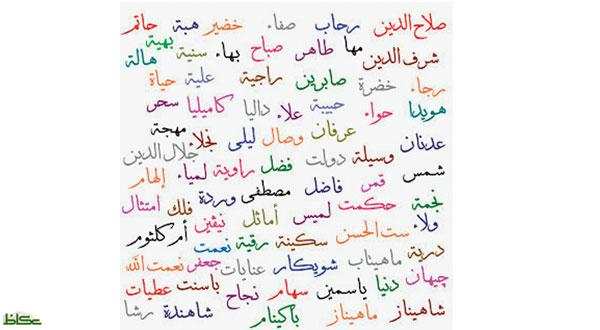 صلاح الدين رحاب صفاء خضير هبة حاتم
شرف الدين مها طاهر صباح بهاء سنية بهية هالة
رجاء خضرة صابرين راجية علية حياة
هويدا حواء حبيبة علاء داليا كاميليا سحر
عدنان عرفان وصال ليلى نجلاء مهجة
شمس وسيلة دولت فضل راوية لمياء جلال الدين
نجمة قمر فاضل مصطفى وردة إلهام
ولاء حكمت لميس أماثل نيڤين فلك امتثال
درية ست الحسن سكينة رقية نعمت أم كلثوم
چيهان ماهيناب شويكار عنايات جعفر نعمت الله
شاهيناز دنيا ياسمين سهام نجاح باسنت عطيات
ماهيناز باكينام شاهندة رشا
عكاظ